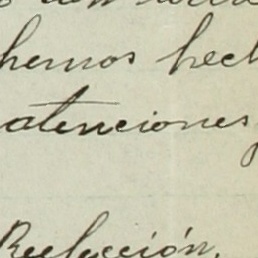 hemos hech
atenciones
Reelección.